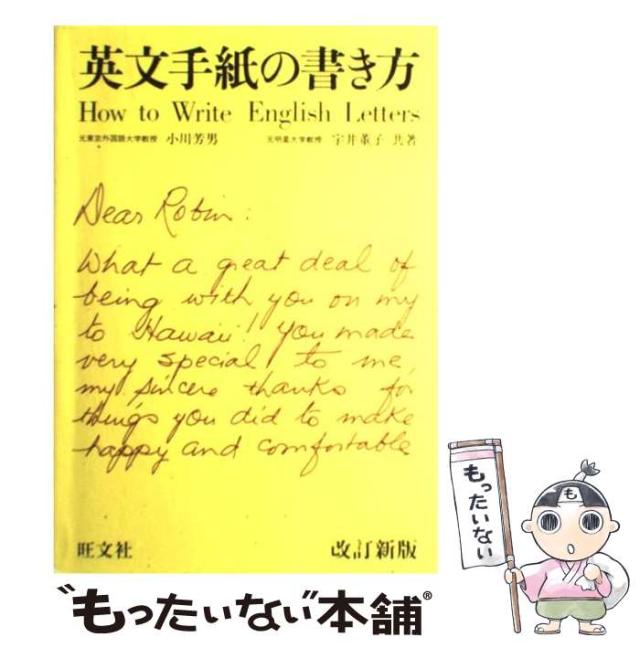 英文手紙の書き方
How to Write English Letters
元東京外国語大学教授 小川芳男 元明星大学教授 宇井菫子 共著
Dear Robin:
What a great deal of
being with you on my
to Hawaii! You made
very special to me,
my sincere thanks for
things you did to make
happy and comfortable
旺文社 改訂新版
もったいない
も
"もったいない"本舗®